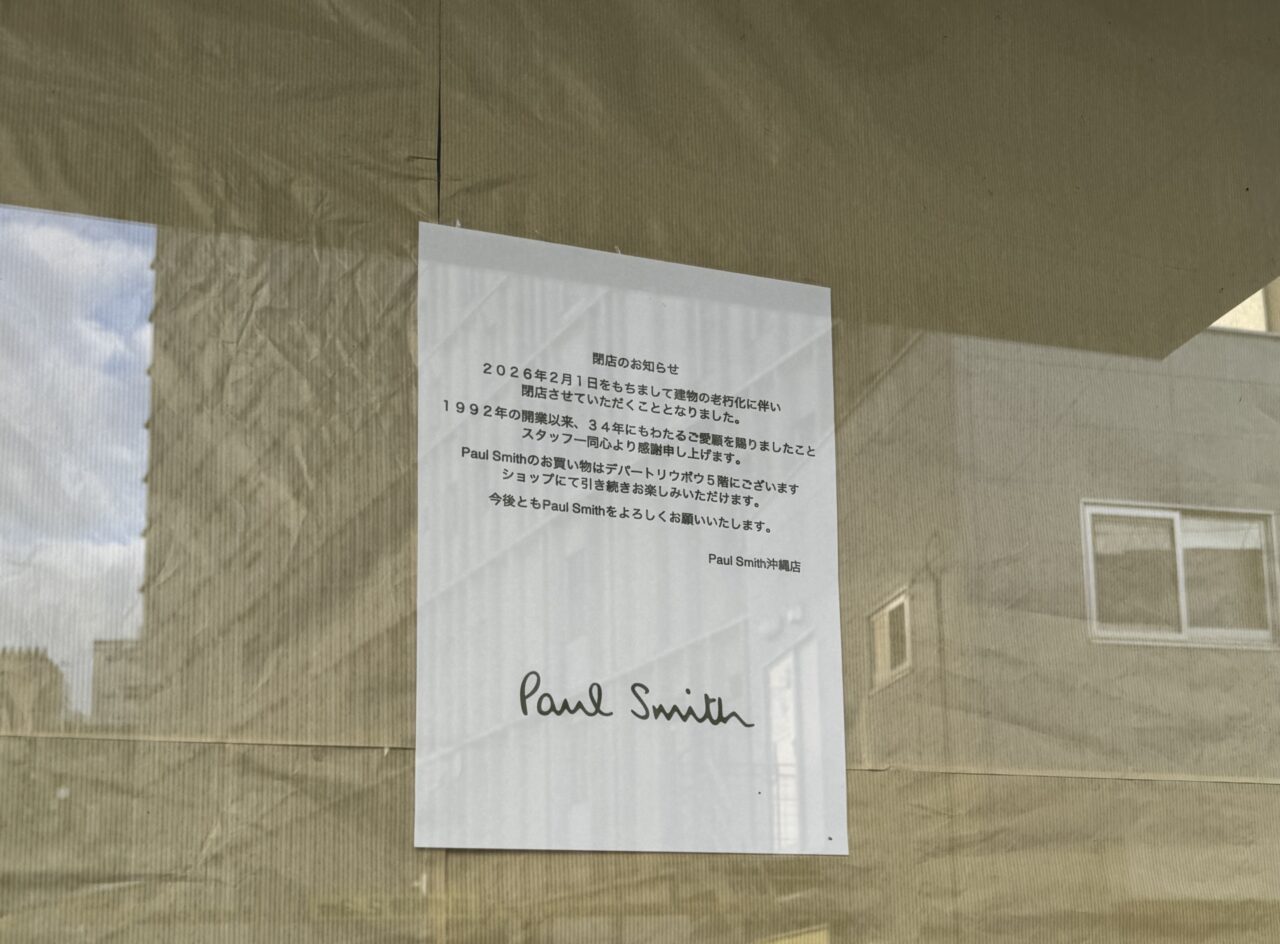 閉店のお知らせ
２０２６年２月１日をもちまして建物の老朽化に伴い
閉店させていただくこととなりました。
１９９２年の開業以来、３４年にもわたるご愛顧を賜りましたこと
スタッフ一同心より感謝申し上げます。
Paul Smithのお買い物はデパートリウボウ５階にございます
ショップにて引き続きお楽しみいただけます。
今後ともPaul Smithをよろしくお願いいたします。
Paul Smith沖縄店
Paul Smith